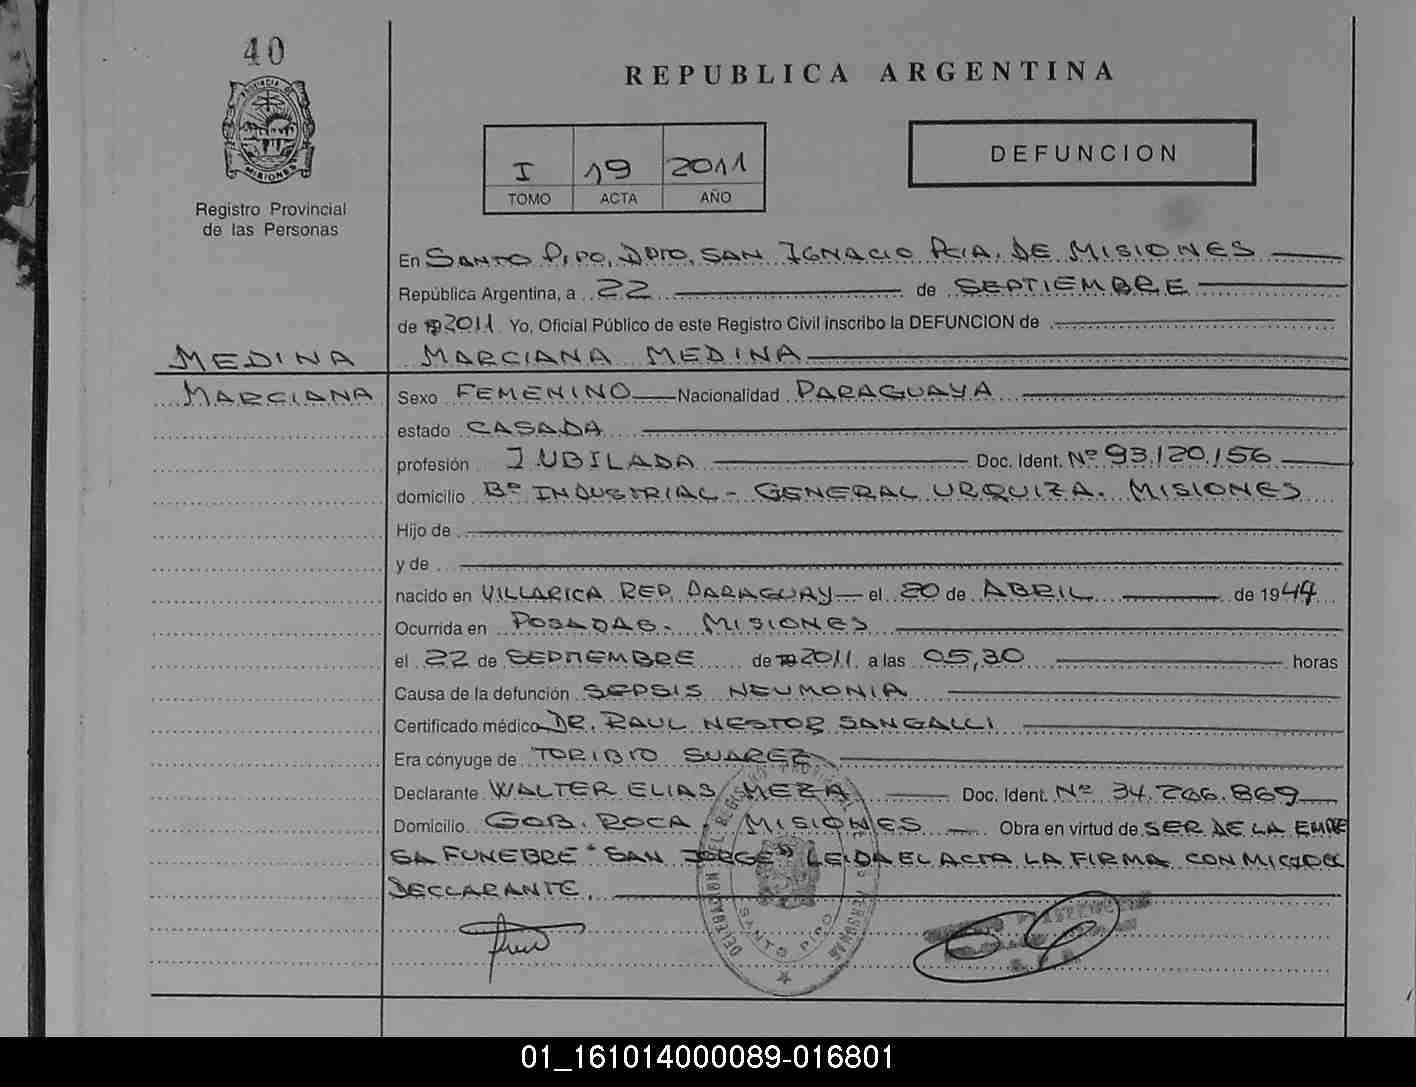 40
PROVINCIA DE
MISIONES
Registro Provincial
de las Personas
REPUBLICA ARGENTINA
I 19 2011
TOMO ACTA AÑO
DEFUNCION
En SANTO PIPO, DPTO, SAN IGNACIO PCIA. DE MISIONES
República Argentina, a 22 de SEPTIEMBRE
de 2011 Yo, Oficial Público de este Registro Civil inscribo la DEFUNCION de
MEDINA MARCIANA MEDINA
MARCIANA Sexo FEMENINO Nacionalidad PARAGUAYA
estado CASADA
profesión JUBILADA Doc. Ident. Nº 93.120.156
domicilio Bº INDUSTRIAL - GENERAL URQUIZA. MISIONES
Hijo de
y de
nacido en VILLARICA REP. PARAGUAY el 20 de ABRIL de 1944
Ocurrida en POSADAS. MISIONES
el 22 de SEPTIEMBRE de 2011 a las 05,30 horas
Causa de la defunción SEPSIS NEUMONIA
Certificado médico DR. RAUL NESTOR SANGALLI
Era cónyuge de TORIBIO SUAREZ
Declarante WALTER ELIAS MEZA Doc. Ident. Nº 34.266.869
Domicilio GOB. ROCA MISIONES Obra en virtud de SER DE LA EMPRE
SA FUNEBRE "SAN JORGE" LEIDA EL ACTA LA FIRMA CONMIGO EL
DECLARANTE.
DELEGACION DEL REGISTRO PROVINCIAL DE LAS PERSONAS
SANTO PIPO
01_161014000089-016801